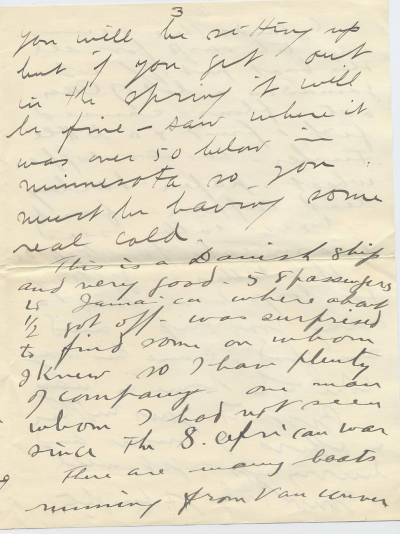 3
you will be sitting up
but if you get out
in the spring it will
be fine - saw where it
was over 50 below in
Minnesota so you
must be having some
real cold.
This is a Danish ship
and very good - 58 passengers
to Jamaica where about
1/2 got off - was surprised
to find some on whom
I knew so I have plenty
of company one man
whom I had not seen
since the S. African war
There are many boats
running from Vancouver